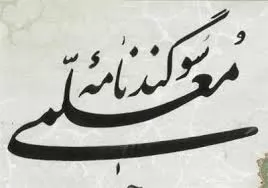 سوگندنامهٔ
معلمی